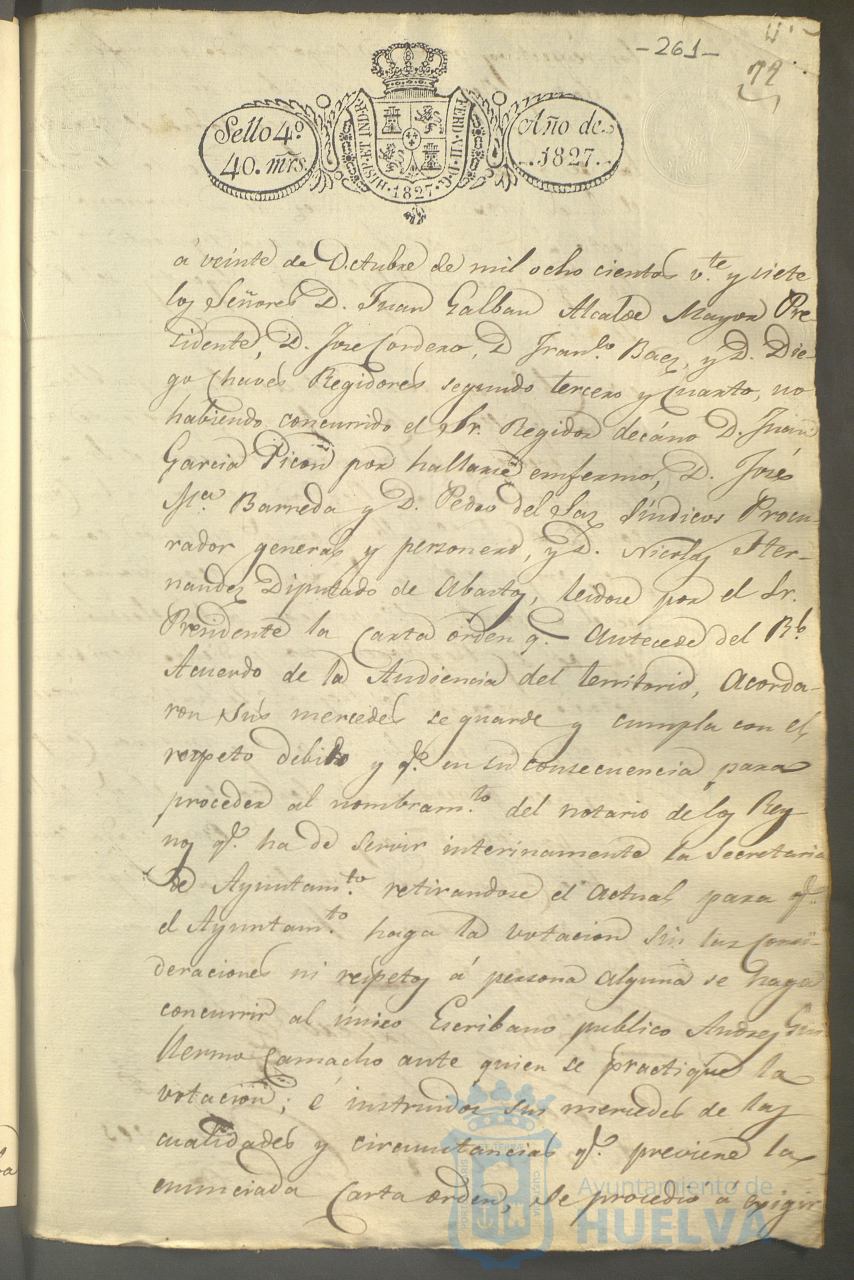 -261-
72
Sello 4º
40. mrs.
HISP. ET IND. R.
FERD. VII. D. G.
1827
Año de
1827.
á veinte de Octubre de mil ocho cientos v.te y siete
los Señores D. Juan Galban Alcalde Mayor Pre-
sidente, D. Jose Cordero, D Fran.co Baez, y D. Die-
go Chaves Regidores segundo tercero y cuarto, no
habiendo concurrido el Sr. Regidor decáno D. Juan
Garcia Picon por hallarse emfermo, D. José
M.a Barreda y D. Pedro del Saz Síndicos Procu-
rador general y personero, y D. Nicolas Her-
nandez Diputado de Abastos, leidose por el Sr.
Presidente la Carta órden q.e antecede del R.l
Acuerdo de la Audiencia del territorio, Acorda-
ron sus mercedes se guarde y cumpla con el
respeto debido y q.e en su consecuencia para
proceder al nombram.to del notario de los Rey-
nos q.e ha de servir interinamente la Secretaria
de Ayuntam.to retirandose el actual para q.e
el Ayuntam.to haga la votacion sin las consi-
deraciones ni respetos á persona alguna se haga
concurrir al único Escribano publico Andres Gui-
llermo Camacho ante quien se practique la
votacion; é instruidos sus mercedes de las
cualidades y circunstancias q.e previene la
enunciada Carta orden, se procedió á exigir
Ayuntamiento de
HUELVA